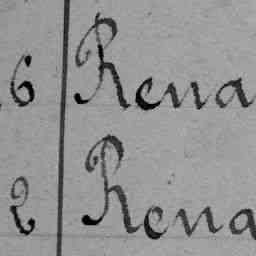 6 Rena
2 Rena